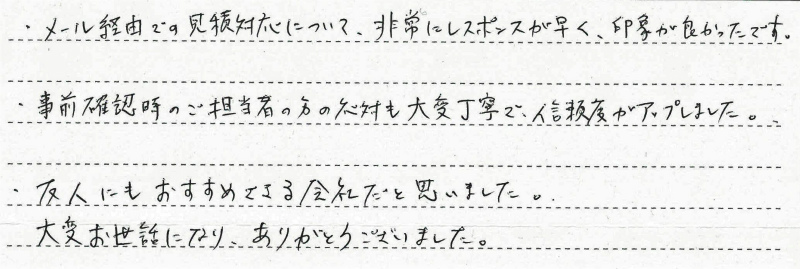 ・メール経由での見積対応について、非常にレスポンスが早く、印象が良かったです。
・事前確認時のご担当者の方の応対も大変丁寧で、信頼度がアップしました。
・友人にもおすすめできる会社だと思いました。
大変お世話になり、ありがとうございました。